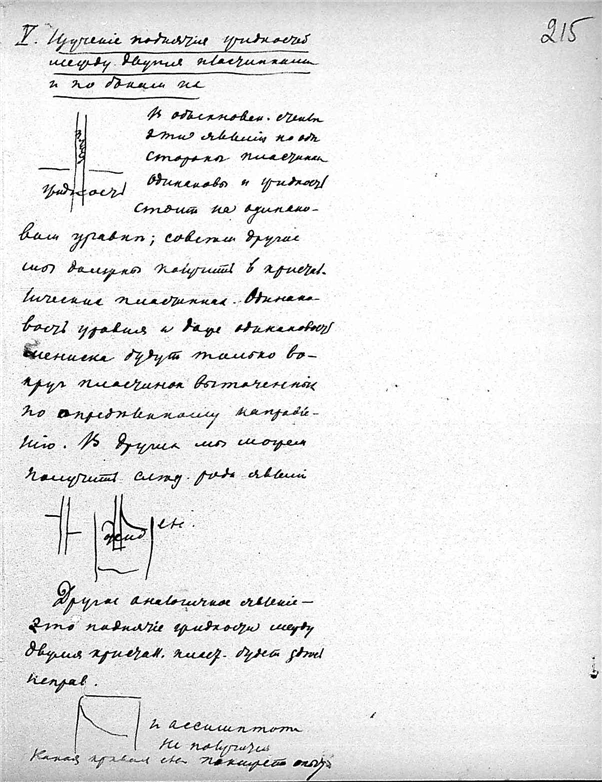 215
V. Изученіе поднятія жидкостей
между двумя пластинками
и по бокам их
В обыкновен.
эти явленія по обѣ
стороны пластинки
одинаковы и жидкость
жидкость
стоит на одинако-
вом уровнѣ; совсѣм другое
мы должны получить в кристал-
лических пластинках. Одинако-
вость уровня и даже одинаковость
мениска будут только во-
круг пластинок выточенных
по опредѣленному направле-
нію. В других мы можем
получить слѣд. рода явленія
жид
Другое аналогичное явленіе —
это поднятіе жидкости между
двумя кристалл. пласт. будет
неправ.
и ассимптоты
не получится
Какая кривая покажет опыт